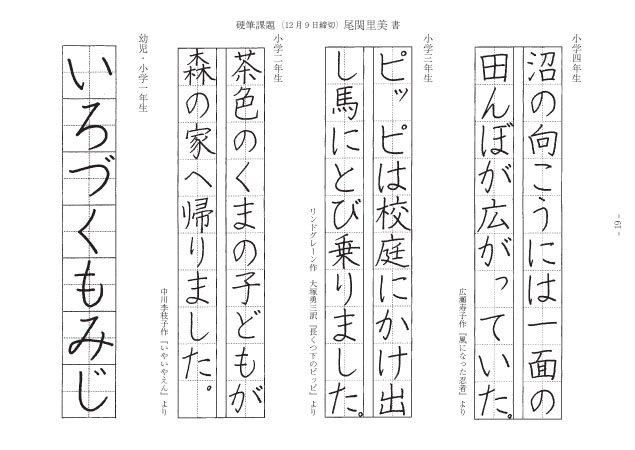 硬筆課題（12月9日締切）尾関里美 書
小学四年生
沼の向こうには一面の
田んぼが広がっていた。
広瀬寿子作『風になった忍者』より
小学三年生
ピッピは校庭にかけ出
し馬にとび乗りました。
リンドグレーン作 大塚勇三訳『長くつ下のピッピ』より
小学二年生
茶色のくまの子どもが
森の家へ帰りました。
中川李枝子作『いやいやえん』より
幼児・小学一年生
いろづくもみじ
- 19 -